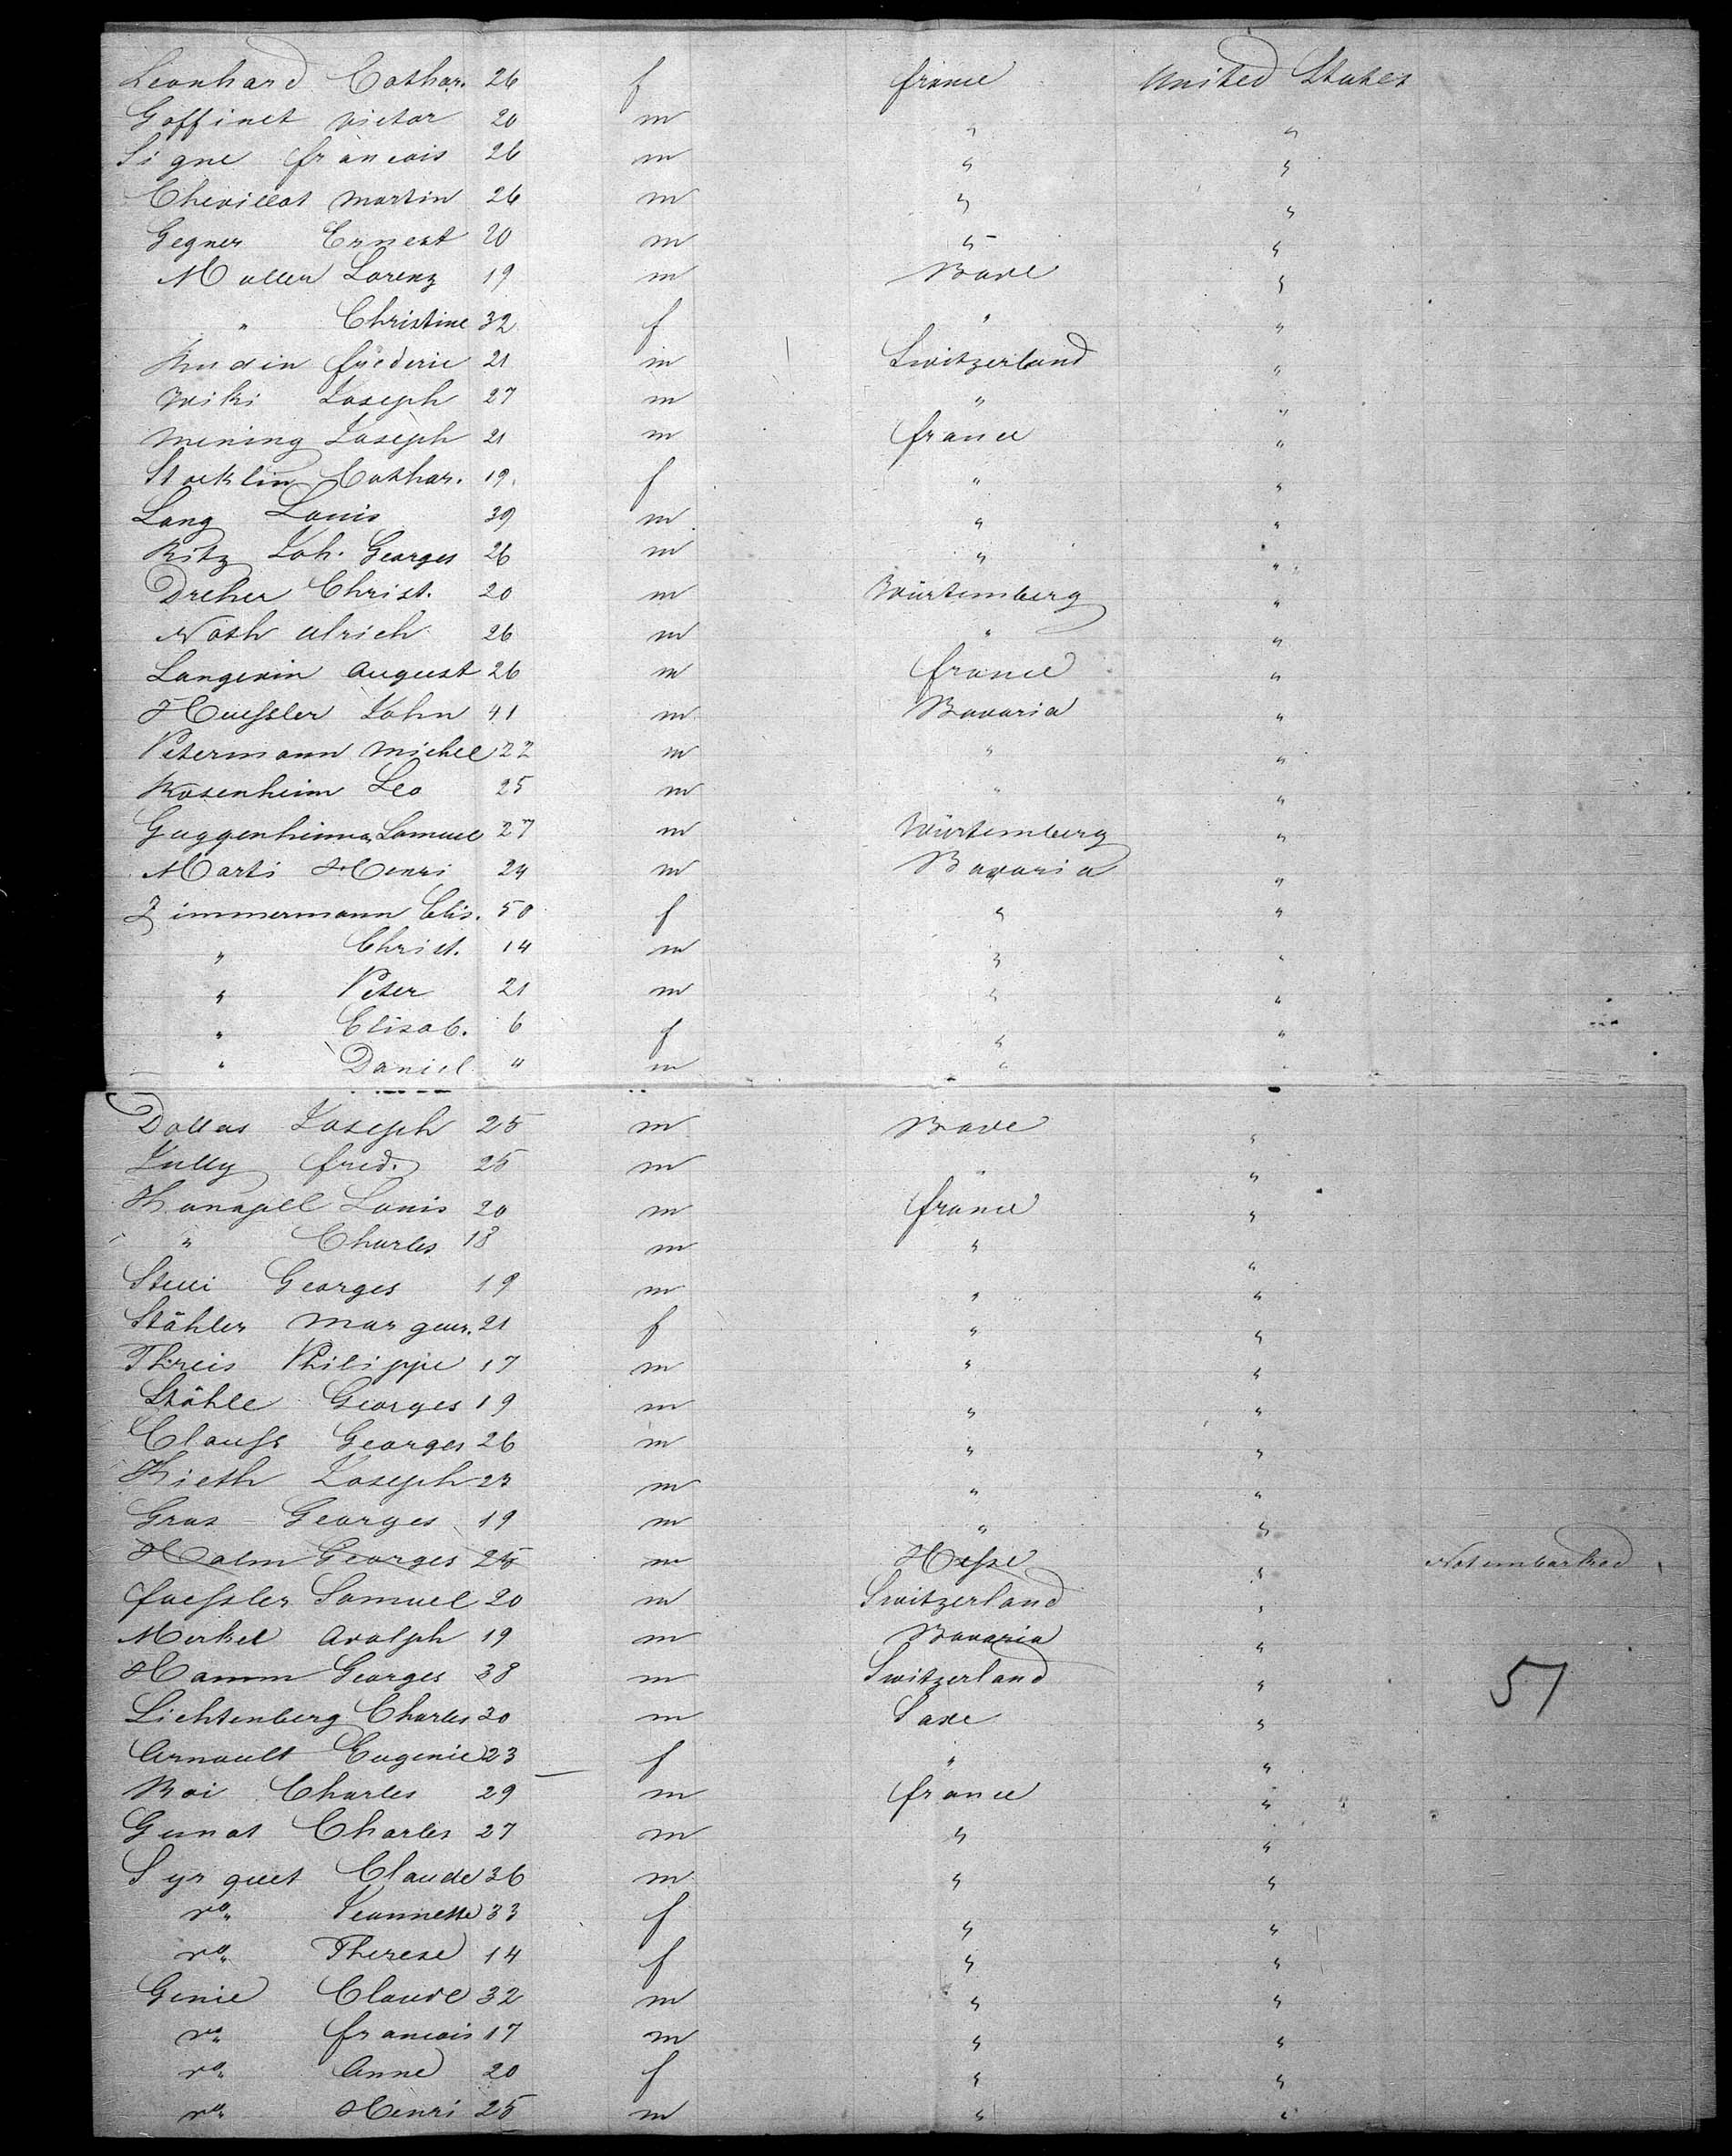 Leonhard Cathar. 26 f france United States
Goffinet victor 20 m " "
Signe francois 26 m " "
Chevillot martin 26 m " "
Gegner Ernest 20 m " "
Muller Lorenz 19 m Bade "
" Christine 32 f " "
frederic 21 m Switzerland "
Wiki Joseph 27 m " "
Mening Joseph 21 m france "
Stocklin Cathar. 19 f " "
Lang Louis 39 m " "
Ritz Joh. Georges 26 m " "
Dreher Christ. 20 m Würtemberg "
Noth Ulrich 26 m " "
Langevin August 26 m france "
Huessler John 41 m Bavaria "
Petermann Michel 22 m " "
Rosenheim Leo 25 m " "
Guggenheimer Samuel 27 m Würtemberg "
Marti Henri 24 m Bavaria "
Zimmermann Elis. 50 f " "
" Christ. 14 m " "
" Peter 21 m " "
" Elisab. 6 f " "
" Daniel " m " "
Dollas Joseph 25 m Bade "
Jully fred. 25 m " "
Louis 20 m france "
" Charles 18 m " "
Georges 19 m " "
Stähler Marguer. 21 f " "
Threis Philippe 17 m " "
Stähle Georges 19 m " "
Clauss Georges 26 m " "
Kieth Joseph 23 m " "
Gras Georges 19 m " "
Halm Georges 25 m Hesse " Not embarked
fuessler Samuel 20 m Switzerland "
Merkel Adolph 19 m Bavaria "
Hamm Georges 38 m Switzerland " 51
Lichtenberg Charles 30 m Saxe "
Arnault Eugenie 23 f " "
Roi Charles 29 m france "
Gunot Charles 27 m " "
Syrquet Claude 36 m " "
do" Jeannette 33 f " "
do" Therese 14 f " "
Genie Claude 32 m " "
do" francois 17 m " "
do" Anne 20 f " "
do" Henri 25 m " "